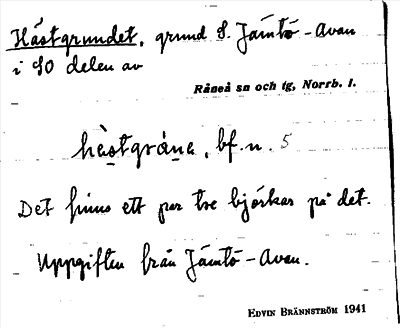 Hästgrundet, grund S. Jämtö-Avan
i SO delen av
Råneå sn och tg, Norrb. l.
hèstgrànɐ, bf. n. 5
Det finns ett par tre björkar på det.
Uppgiften från Jämtö-Avan.
EDVIN BRÄNNSTRÖM 1941